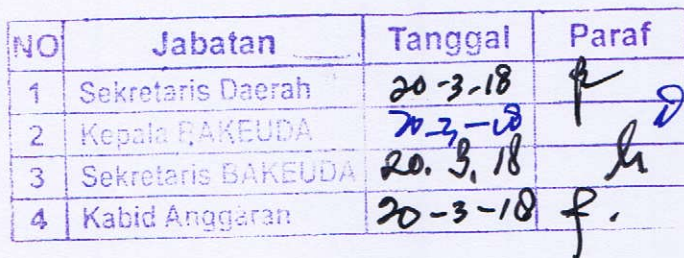 NO Jabatan Tanggal Paraf
1 Sekretaris Daerah 20-3-18
2 Kepala BAKEUDA 20-3-18
3 Sekretaris BAKEUDA 20.3.18
4 Kabid Anggaran 20-3-18